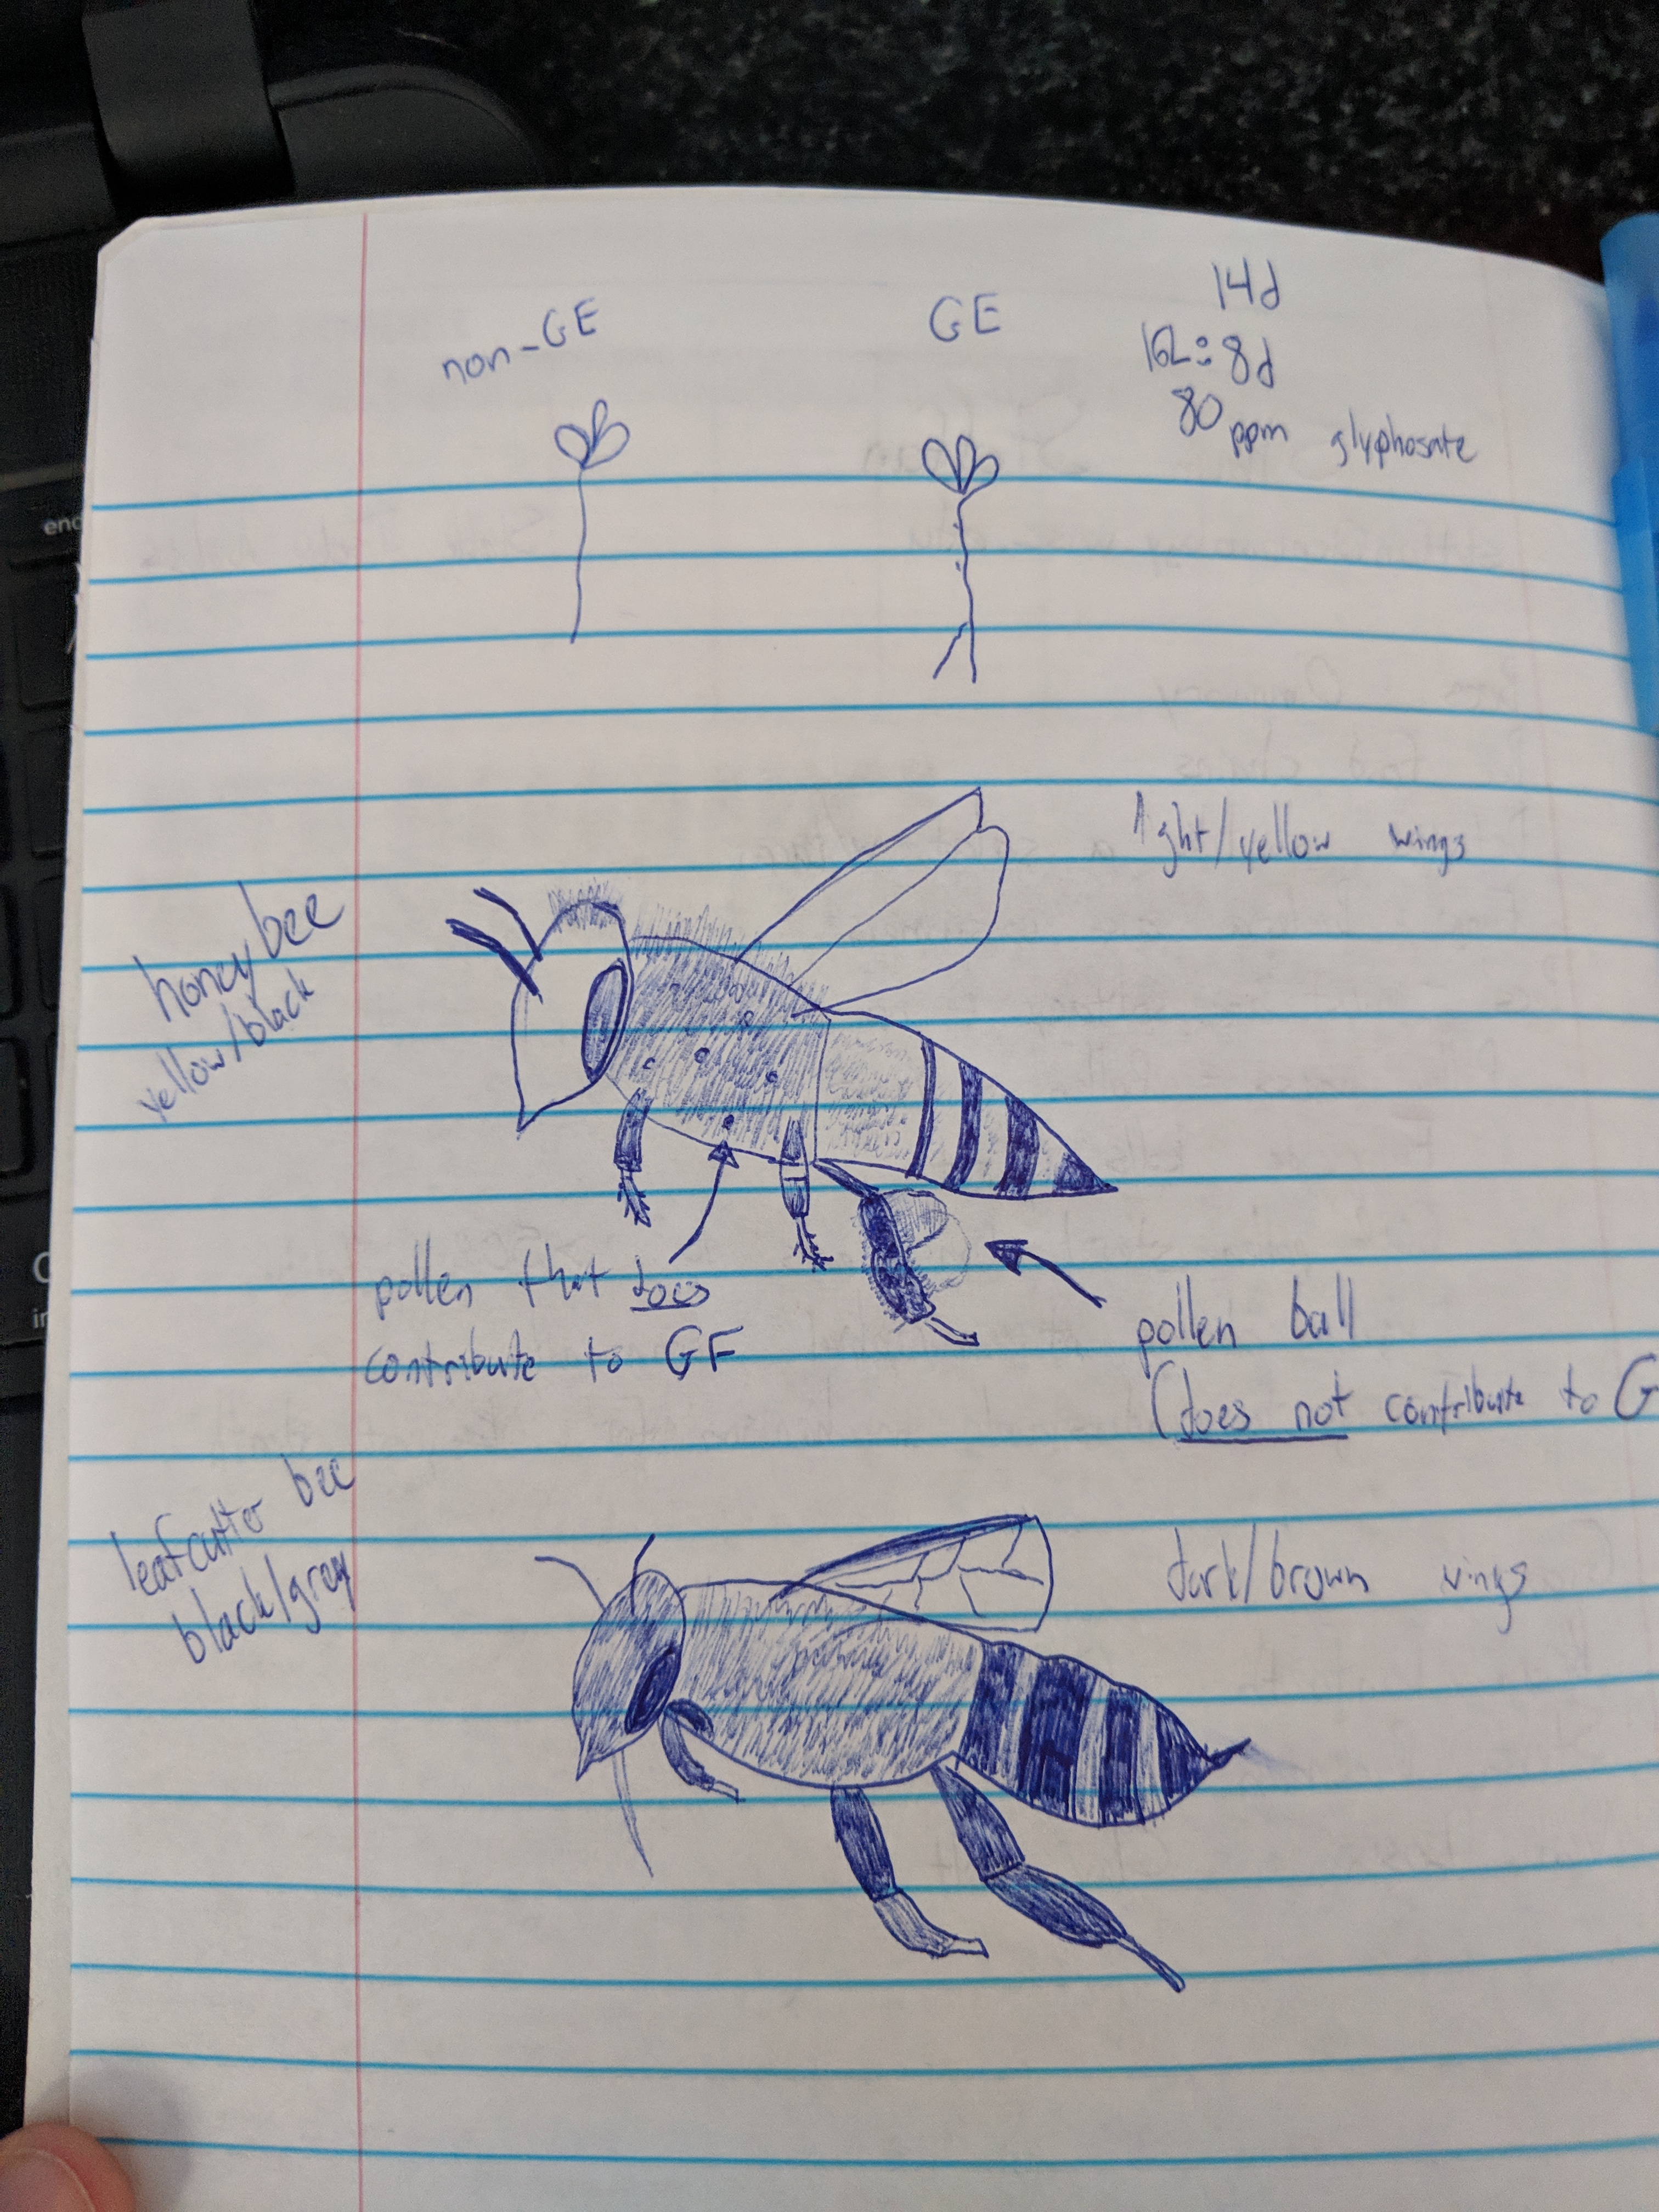 non-GE
GE
14d
16L:8d
80 ppm glyphosate
light/yellow wings
honey bee
yellow/black
pollen that does
contribute to GF
pollen ball
(does not contribute to G
leafcutter bee
black/grey
dark/brown wings
end